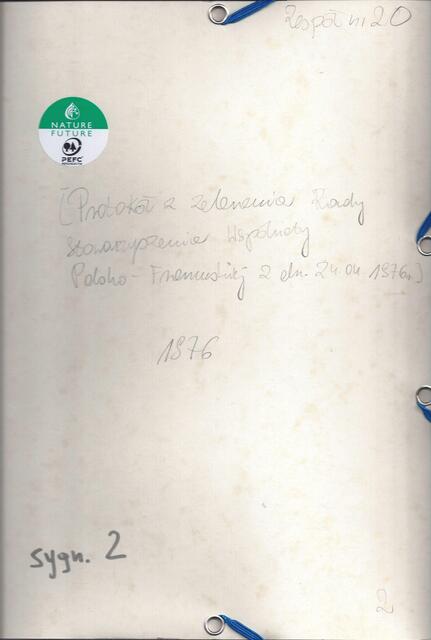 Zespół nr 20
NATURE
FUTURE
PEFC
[Protokół z zebrania Rady
Stowarzyszenia Wspólnoty
Polsko - 2 dn. 24.04.1976r.]
1976
sygn. 2
2